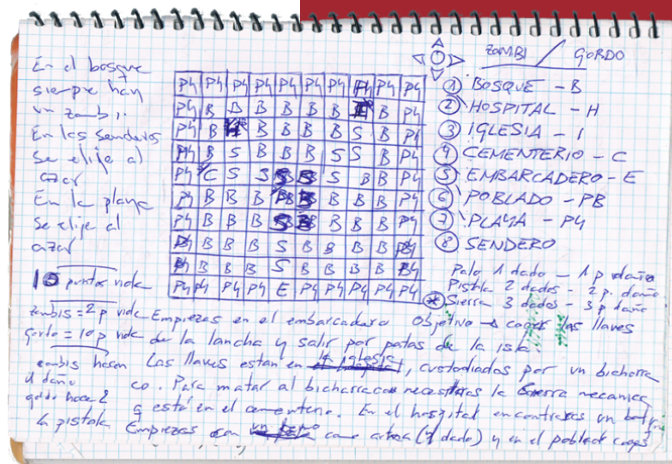 ZOMBI / GORDO
En el bosque
siempre hay
un zombi.
En los senderos
se elije al
azar
En la playa
se elije al
azar
10 puntos vida
zombis = 2 p vida
gordo = 10 p vida
zombis hacen
1 daño
gordo hace 2
P4 P4 P4 P4 P4 P4 P4 P4 P4
P4 B B B B B B P4
P4 B H B B B B S B P4
P4 B S B B B S S B P4
P4 C S S B B P4
P4 B B B B B B P4
P4 B B B B B B P4
P4 B B B S B B B B P4
B B B S B B B B
P4 P4 P4 P4 E P4 P4 P4 P4
① BOSQUE - B
② HOSPITAL - H
③ IGLESIA - I
④ CEMENTERIO - C
⑤ EMBARCADERO - E
⑥ POBLADO - PB
⑦ PLAYA - P4
⑧ SENDERO
Palo 1 dado - 1 p daño
Pistola 2 dados - 2 p. daño
Sierra 3 dados - 3 p daño
Empiezas en el embarcadero Objetivo → coger las llaves
de la lancha y salir por patas de la isla.
Las llaves estan en la iglesia, custodiadas por un bichorra
co. Para matar al bicharraco necesitas la sierra mecanica
q está en el cementerio. En el hospital encontraras un
Empiezas con como arma (1 dado) y en el poblado coges
la pistola